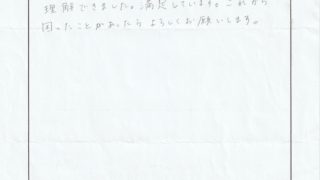 理解できました。満足しています。これから
困ったことがあったらよろしくお願いします。